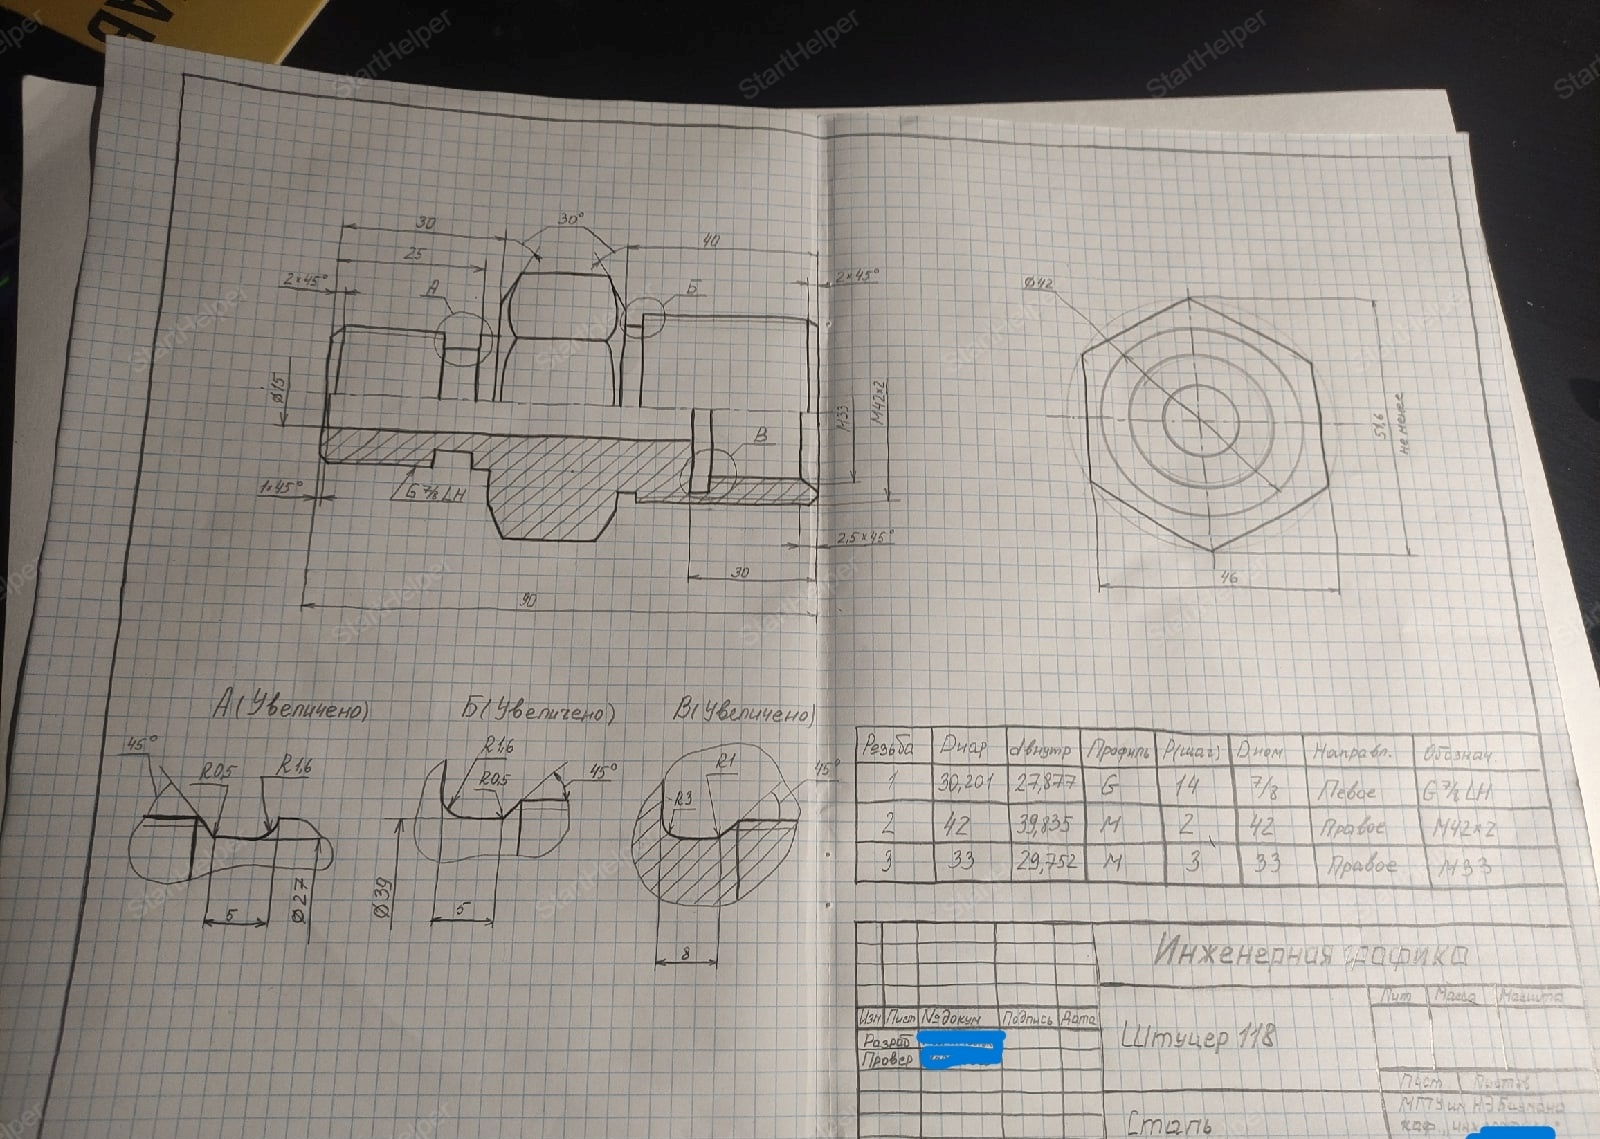 30
30°
40
25
2×45°
2×45°
А
Б
Ø15
М33
М42×2
В
1×45°
G 7/8 LH
2,5×45°
30
90
Ø42
51,6
не менее
46
А(Увеличено)
Б(Увеличено)
В(Увеличено)
45°
R0,5
R1,6
5
Ø27
R1,6
R0,5
45°
Ø39
5
R1
R3
45°
8
Резьба Диар dвнутр Профиль Р(шаг) Dном Направл. Обознач.
1 30,201 27,877 G 14 7/8 Левое G 7/8 LH
2 42 39,835 М 2 42 Правое М42×2
3 33 29,752 М 3 33 Правое М33
Инженерная графика
Лит Масса Масштаб
Изм Лист №докум Подпись Дата
Разраб
Провер
Штуцер 118
Лист Листов
Сталь
МГТУ им Н.Э.Баумана
каф.
StartHelper